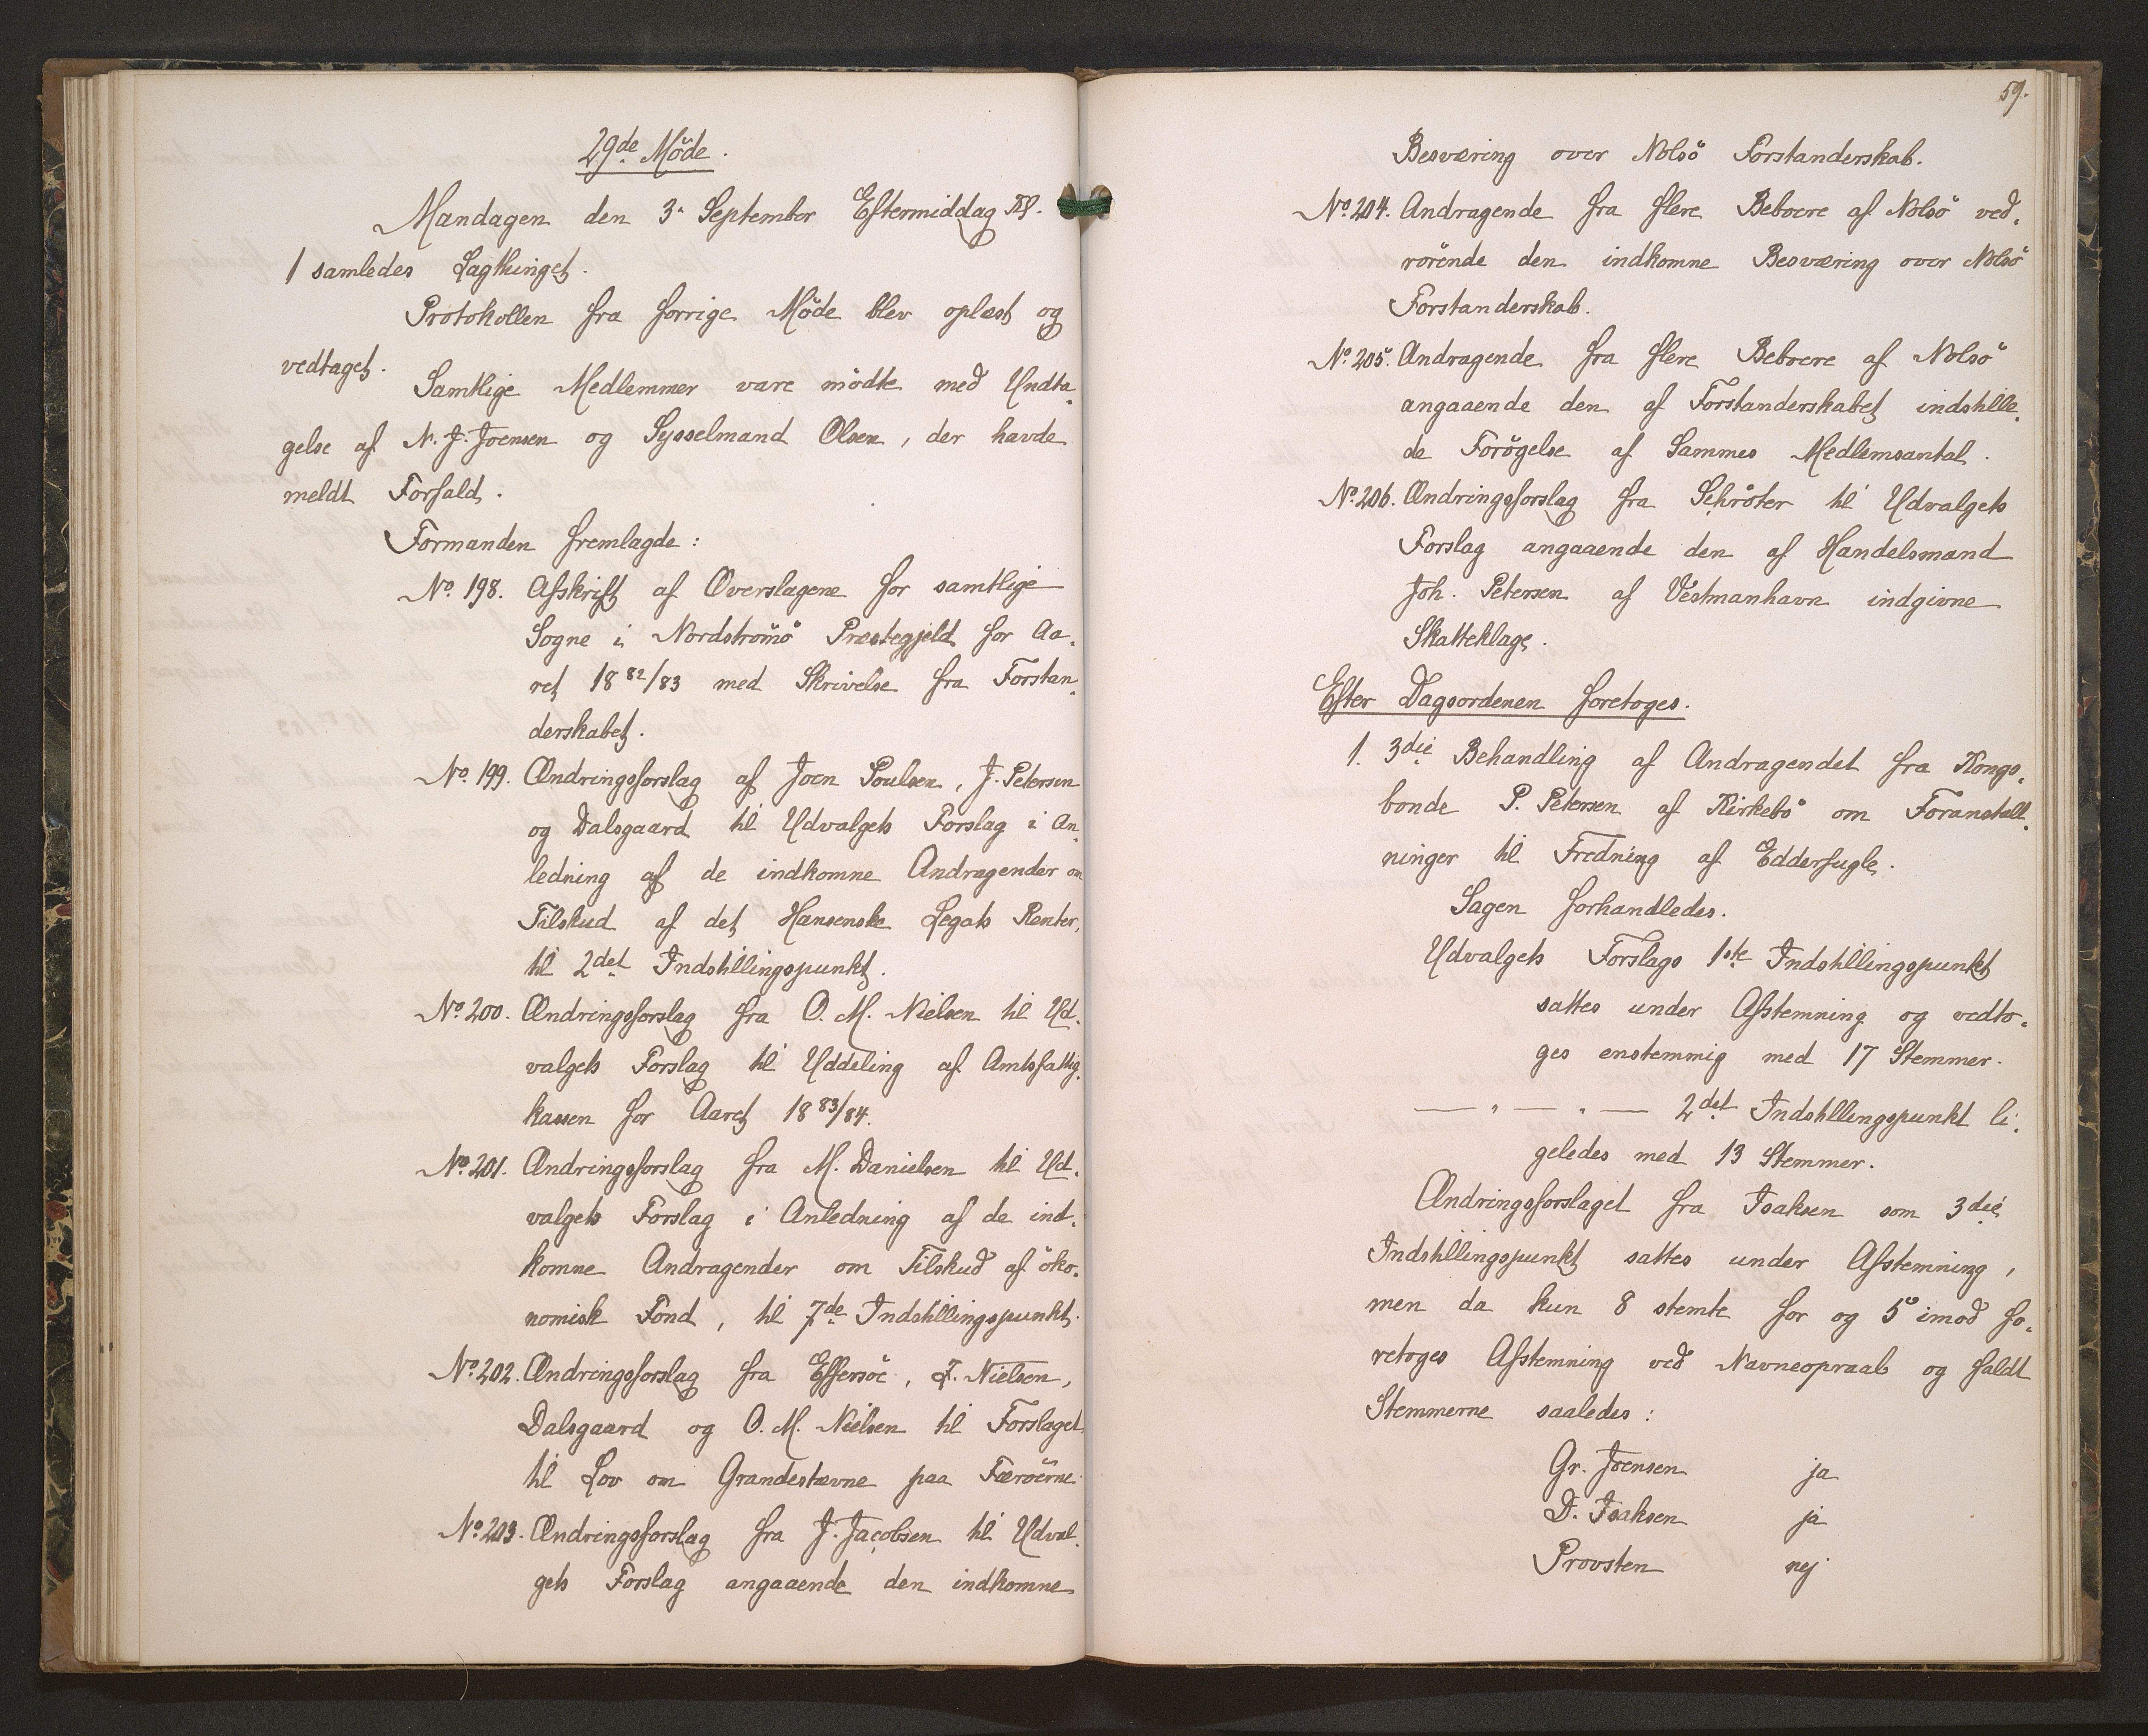 29de Möde.
Mandagen den 3. September Eftermiddag Kl.
1 samledes Lagthinget.
Protokollen fra forrige Möde blev oplæst og
vedtaget.
Samtlige Medlemmer vare mödte med Undta„
gelse af N. J. Joensen og Sysselmand Olsen, der havde
meldt Forfald.
Formanden fremlagde:
No. 198. Afskrift af Overslagene for samtlige
Sogne i Nordströmö Præstegjeld for Aa„
ret 1882/83 med Skrivelse fra Forstan„
derskabet.
No. 199. Ændringsforslag af Joen Poulsen, J. Petersen
og Dalsgaard til Udvalgets Forslag i An„
ledning af de indkomne Andragender om
Tilskud af det Hansenske Legats Renter,
til 2det Indstillingspunkt.
No. 200. Ændringsforslag fra O. M. Nielsen til Ud„
valgets Forslag til Uddeling af Amtsfattig„
kassen for Aaret 1883/84.
No. 201. Ændringsforslag fra M. Danielsen til Ud„
valgets Forslag i Anledning af de ind„
komne Andragender om Tilskud af öko„
nomisk Fond, til 7de Indstillingspunkt.
No. 202. Ændringsforslag fra Effersöe, F. Nielsen,
Dalsgaard og O. M. Nielsen til Forslaget
til Lov om Grandestævne paa Færöerne
No. 203. Ændringsforslag fra J. Jacobsen til Udval„
gets Forslag angaaende den indkomne
59.
Besværing over Nolsö Forstanderskab.
No. 204. Andragende fra flere Beboere af Nolsö ved„
rörende den indkomne Besværing over Nolsö
Forstanderskab.
No. 205. Andragende fra flere Beboere af Nolsö
angaaende den af Forstanderskabet indstille„
de Forögelse af Sammes Medlemsantal.
No. 206. Ændringsforslag fra Schröter til Udvalgets
Forslag angaaende den af Handelsmand
Joh. Petersen af Vestmanhavn indgivne
Skatteklage.
Efter Dagsordenen foretoges.
1. 3die Behandling af Andragendet fra Kongs„
bonde P. Petersen af Kirkebö om Foranstalt„
ninger til Fredning af Edderfugle.
Sagen forhandledes.
Udvalgets Forslags 1ste Indstillingspunkt
sattes under Afstemning og vedto„
ges enstemmig med 17 Stemmer.
— „ — „ — 2det Indstillingspunkt li„
geledes med 13 Stemmer.
Ændringsforslaget fra Isaksen som 3die
Indstillingspunkt sattes under Afstemning,
men da kun 8 stemte for og 5 imod fo„
retoges Afstemning ved Navneopraab og faldt
Stemmerne saaledes:
Gr. Joensen ja
D. Isaksen ja
Provsten nej